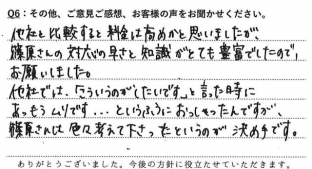 Q6：その他、ご意見ご感想、お客様の声をお聞かせください。
他社と比較すると料金は高めかと思いましたが、
篠原さんの対応の早さと知識がとても豊富でしたので、
お願いしました。
他社では、「こういうのがしたいです」と言った時に
あっもうムリです…というふうにおっしゃったんですが、
篠原さんは色々考えて下さったというのが決め手です。
ありがとうございました。今後の方針に役立たせていただきます。